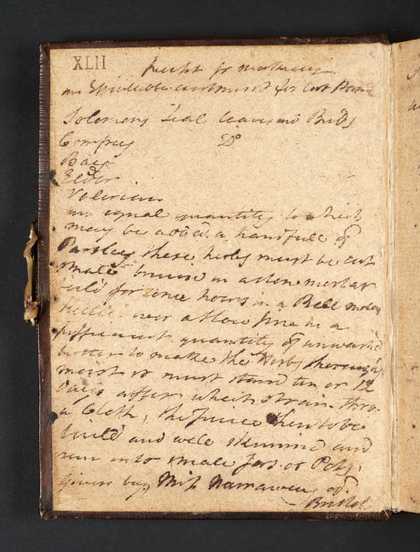 XLII
Receipt for making
an Excellent ointment for
Solomons Seal leaves and Buds
Comfrey Do
Bays
Elder
Valerian
an equal quantity to which
may be added a handfull of
Parsley these herbs must be cut
small bruised in a stone mortar
boild for some hours in a Bell mettle
kettle over a slow fire in a
sufficient quantity of unwash'd
butter to make the Herbs
moist it must stand ten or 12
Days after which strain thro
a Cloth, the juice then to be
boild and well skimmed and
run into small Jars or Pots,
Given by Miss of
Bristol